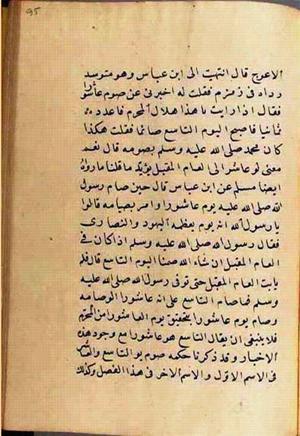 95
الاعرج قال انتهيت الى ابن عباس وهو متوسد
رداه في زمزم فقلت له اخبرني عن صوم عاشورا
فقال اذا رايت هلال المحرم فاعدد
ثمانيا فاصبح اليوم التاسع صائما فقلت هكذا
كان محمد صلى الله عليه وسلم يصومه قال نعم
معنى لو عاش الى العام المقبل يؤيد ما قلنا ما رواه
ايضا مسلم عن ابن عباس قال حين صام رسول
الله صلى الله عليه يوم عاشورا وامر بصيامه قالوا
يا رسول الله انه يوم يعظمه اليهود والنصارى
فقال رسول الله صلى الله عليه وسلم اذا كان في
العام المقبل ان شاء الله صمنا اليوم التاسع قال فلم
يات العام المقبل حتى توفي رسول الله صلى الله عليه
وسلم فما صام التاسع على انه عاشورا الوصامه
وصام يوم عاشورا بتحقيق يوم العاشر من المحرم
فلا ينبغي ان يقال التاسع هو عاشورا مع وجود هذه
الاخبار وقد ذكرنا حكمه صوم يو التاسع والعاشر
في الاسم الاول والاسم الاخر في هذا الفصل وكذلك